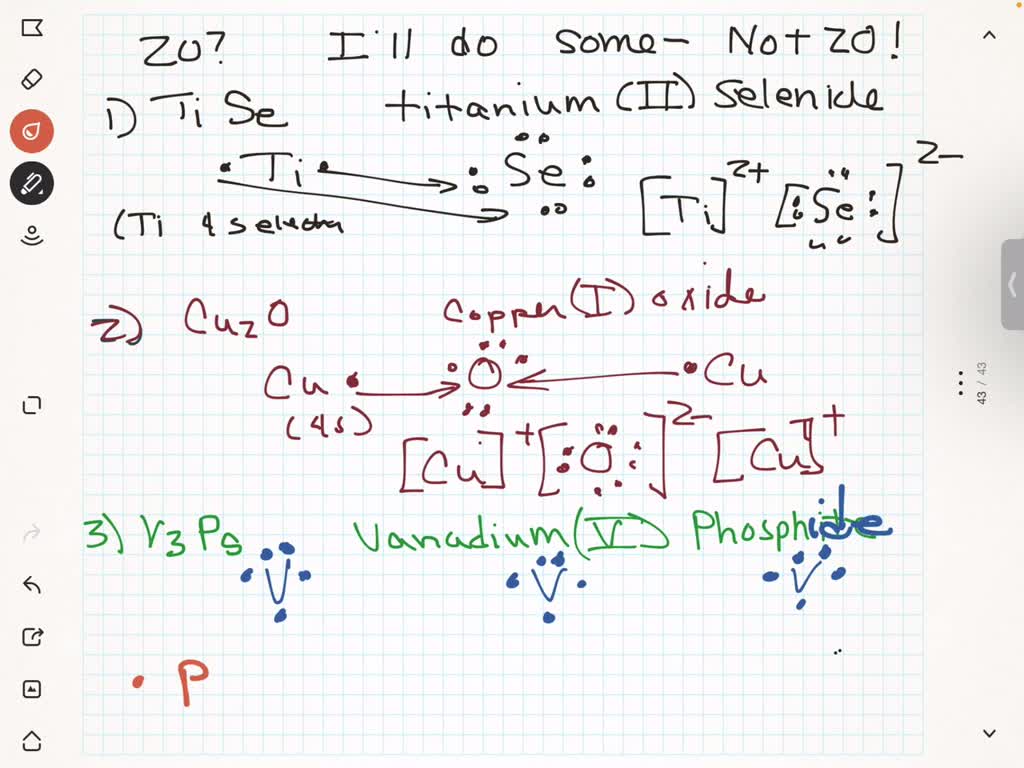 20? I'll do some - Not 20!
1) TiSe titanium (II) selenide
Ti Se [Ti]2+ [Se]2-
(Ti 4s
2) Cu2O Copper (I) oxide
Cu O Cu
(4s)
[Cu]+ [O]2- [Cu]+
3) V3P5 Vanadium (V) Phosphide
V V V
P
43 / 43